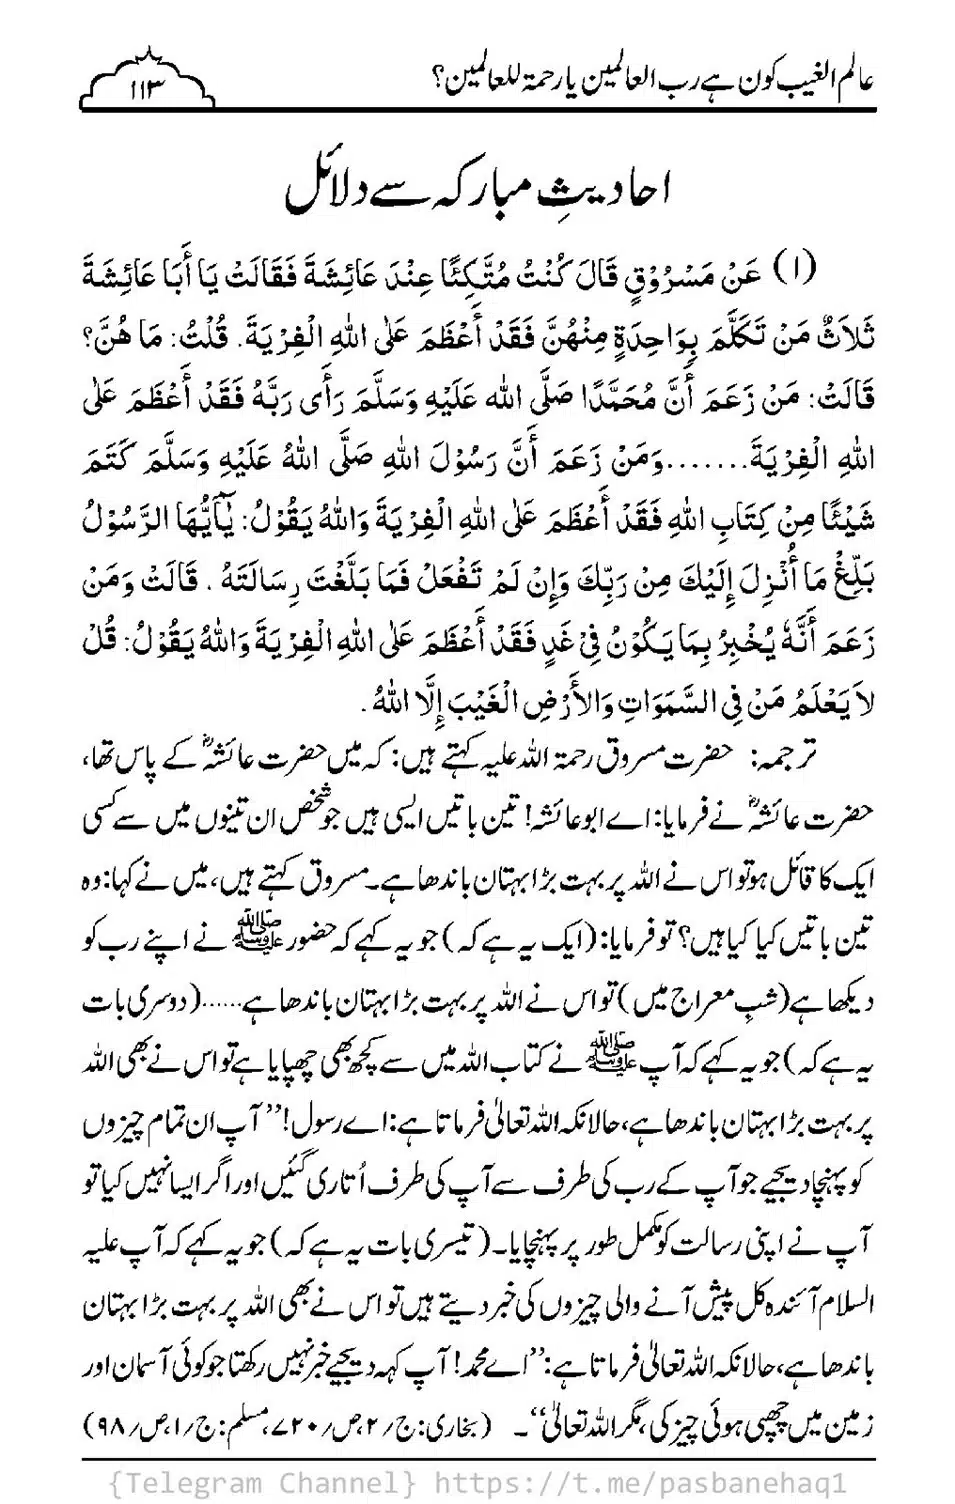 عالم الغیب کون ہے رب العالمین یا رحمۃ للعالمین؟
۱۱۳
احادیثِ مبارکہ سے دلائل
(۱) عَنْ مَسْرُوْقٍ قَالَ كُنْتُ مُتَّكِئًا عِنْدَ عَائِشَةَ فَقَالَتْ يَا أَبَا عَائِشَةَ
ثَلَاثٌ مَنْ تَكَلَّمَ بِوَاحِدَةٍ مِنْهُنَّ فَقَدْ أَعْظَمَ عَلَى اللهِ الْفِرْيَةَ. قُلْتُ: مَا هُنَّ؟
قَالَتْ: مَنْ زَعَمَ أَنَّ مُحَمَّدًا صَلَّى الله عَلَيْهِ وَسَلَّمَ رَأَى رَبَّهُ فَقَدْ أَعْظَمَ عَلَى
اللهِ الْفِرْيَةَ.......وَمَنْ زَعَمَ أَنَّ رَسُوْلَ اللهِ صَلَّى اللهُ عَلَيْهِ وَسَلَّمَ كَتَمَ
شَيْئًا مِنْ كِتَابِ اللهِ فَقَدْ أَعْظَمَ عَلَى اللهِ الْفِرْيَةَ وَاللهُ يَقُوْلُ: يٰٓأَيُّهَا الرَّسُوْلُ
بَلِّغْ مَا أُنْزِلَ إِلَيْكَ مِنْ رَبِّكَ وَإِنْ لَمْ تَفْعَلْ فَمَا بَلَّغْتَ رِسَالَتَهُ . قَالَتْ وَمَنْ
زَعَمَ أَنَّهُ يُخْبِرُ بِمَا يَكُوْنُ فِيْ غَدٍ فَقَدْ أَعْظَمَ عَلَى اللهِ الْفِرْيَةَ وَاللهُ يَقُوْلُ: قُلْ
لَا يَعْلَمُ مَنْ فِي السَّمَوَاتِ وَالأَرْضِ الْغَيْبَ إِلَّا اللهُ .
ترجمہ: حضرت مسروق رحمۃ اللہ علیہ کہتے ہیں: کہ میں حضرت عائشہؓ کے پاس تھا،
حضرت عائشہؓ نے فرمایا: اے ابو عائشہ! تین باتیں ایسی ہیں جو شخص ان تینوں میں سے کسی
ایک کا قائل ہو تو اس نے اللہ پر بہت بڑا بہتان باندھا ہے۔ مسروق کہتے ہیں، میں نے کہا: وہ
تین باتیں کیا کیا ہیں؟ تو فرمایا: (ایک یہ ہے کہ) جو یہ کہے کہ حضور ﷺ نے اپنے رب کو
دیکھا ہے (شبِ معراج میں) تو اس نے اللہ پر بہت بڑا بہتان باندھا ہے......(دوسری بات
یہ ہے کہ) جو یہ کہے کہ آپ ﷺ نے کتاب اللہ میں سے کچھ بھی چھپایا ہے تو اس نے بھی اللہ
پر بہت بڑا بہتان باندھا ہے، حالانکہ اللہ تعالیٰ فرماتا ہے: اے رسول! ”آپ ان تمام چیزوں
کو پہنچا دیجیے جو آپ کے رب کی طرف سے آپ کی طرف اُتاری گئیں اور اگر ایسا نہیں کیا تو
آپ نے اپنی رسالت کو مکمل طور پر پہنچایا۔ (تیسری بات یہ ہے کہ) جو یہ کہے کہ آپ علیہ
السلام آئندہ کل پیش آنے والی چیزوں کی خبر دیتے ہیں تو اس نے بھی اللہ پر بہت بڑا بہتان
باندھا ہے، حالانکہ اللہ تعالیٰ فرماتا ہے: ”اے محمد! آپ کہہ دیجیے خبر نہیں رکھتا جو کوئی آسمان اور
زمین میں چھپی ہوئی چیز کی، مگر اللہ تعالیٰ“۔ (بخاری: ج/۲،ص/۷۲۰، مسلم: ج/۱،ص/۹۸)
{Telegram Channel} https://t.me/pasbanehaq1